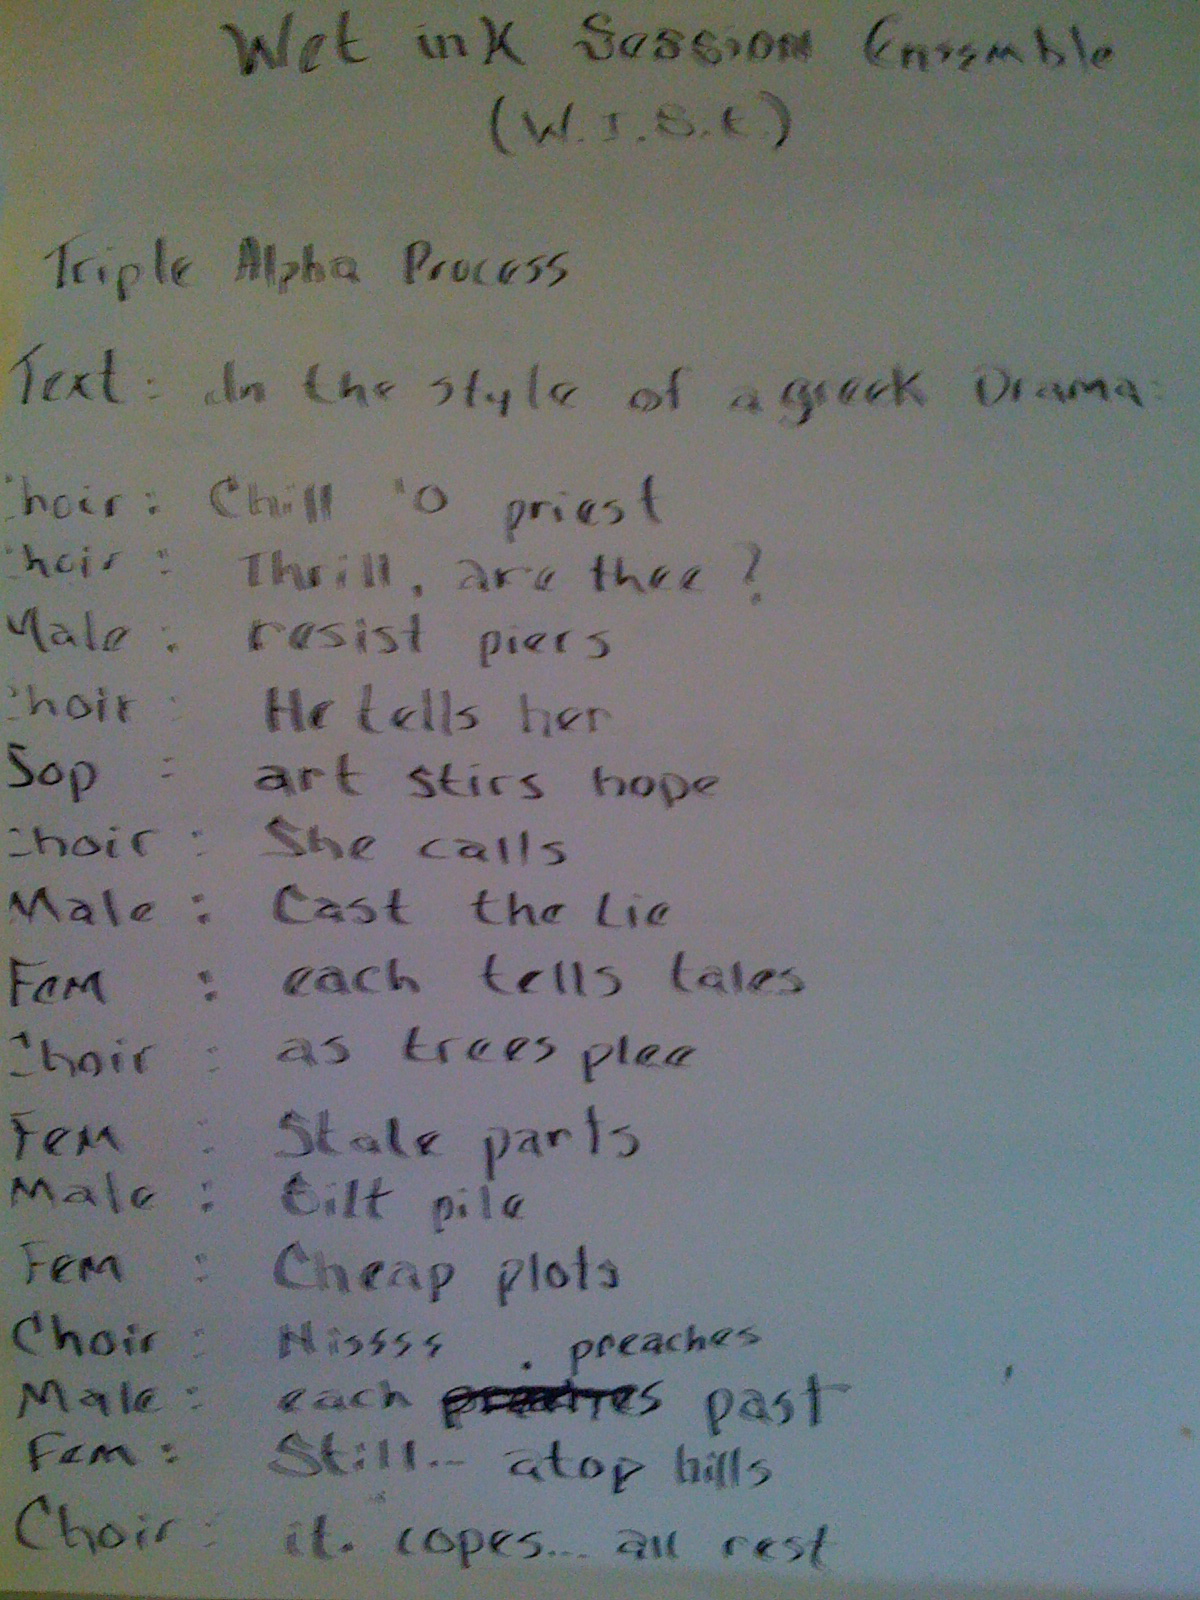 Wet ink Session Ensemble
(W.I.S.E.)
Triple Alpha Process
Text: In the style of a greek Drama:
Choir: Chill 'O priest
Choir: Thrill, are thee?
Male: resist piers
Choir: He tells her
Sop: art stirs hope
Choir: She calls
Male: Cast the Lie
Fem: each tells tales
Choir: as trees plee
Fem: Stale parts
Male: tilt pile
Fem: Cheap plots
Choir: Hissss. preaches
Male: each preaches past
Fem: Still... atop hills
Choir: it. copes... all rest